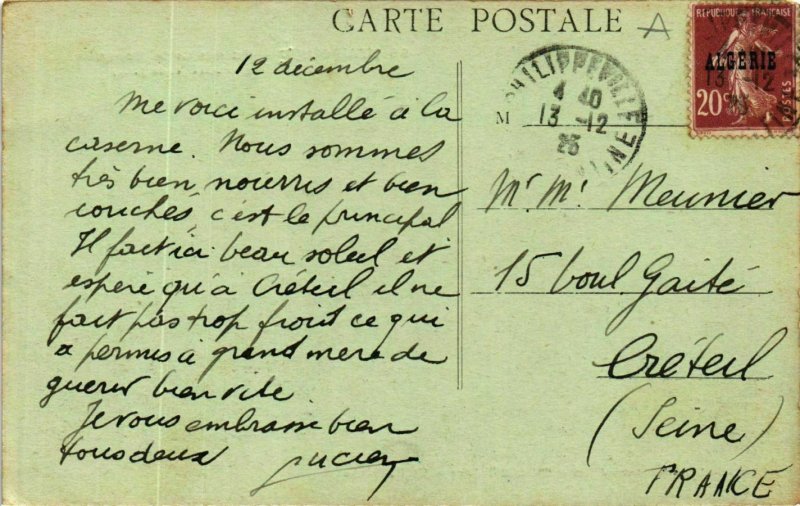 CARTE POSTALE
A
RÉPUBLIQUE FRANÇAISE
ALGÉRIE
20c
POSTES
PHILIPPEVILLE
4 40
13 -12
25
M
12 décembre
Me voici installé à la
caserne. Nous sommes
très bien nourris et bien
couchés, c'est le principal
Il fait ici beau soleil et
espère qu'à Créteil il ne
fait pas trop froid ce qui
a permis à grand mère de
guerir bien vite
Je vous embrasse bien
tous deux Lucien
Mr Me Meunier
15 boul Gaité
Créteil
(Seine)
FRANCE